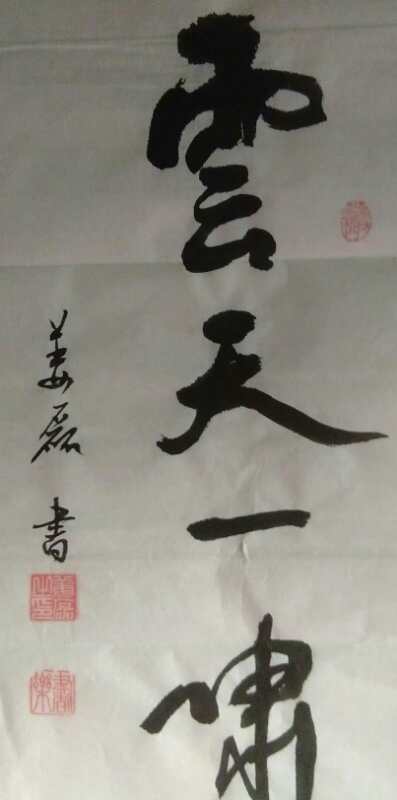 雲天一嘯
姜磊書